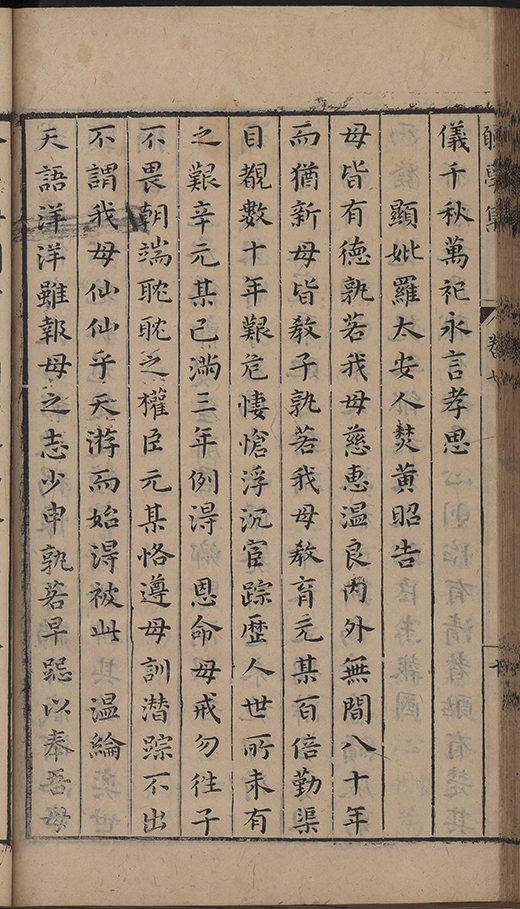 夢集 卷七
儀千秋萬祀永言孝思
顯妣羅太安人焚黃昭告
毋皆有德孰若我母慈惠温良内外無間八十年
而猶新毋皆教子孰若我母教育元某百倍勤渠
目覩數十年艱危悽愴浮沉宦踪歴人世所未有
之艱辛元某已滿三年例得 恩命母戒勿徃子
不畏朝端眈眈之權臣元某恪遵母訓潜踪不出
不謂我母仙仙乎天游而始得被此 温綸
天語洋洋雖報母之志少申孰若早跽以奉吾母